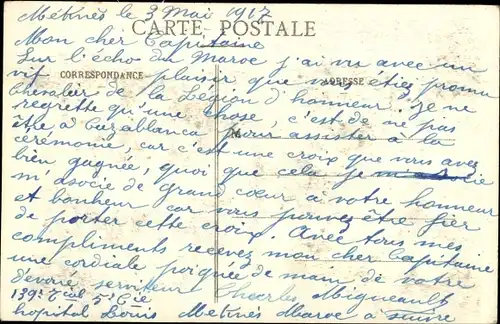 Metinès le 3 Mai 1917
CARTE POSTALE
Mon cher Capitaine
Sur l'écho du Maroc j'ai vu avec un
CORRESPONDANCE
ADRESSE
vif plaisir que vous étiez promu
chevalier de la Légion d'honneur. Je ne
regrette qu'une chose, c'est de ne pas
être à Cazablanca pour assister à la
cérémonie, car c'est une croix que vous avez
bien gagnée, quoi que cela je m'associe
m'associe de grand cœur à votre honneur
et bonheur car vous pouvez être fier
de porter cette croix. Avec tous mes
compliments recevez mon cher Capitaine
une cordiale poignée de main de votre
dévoué serviteur Charles Migueault
139e Tial 5e Cie
hopital Louis Metinès Maroc à suivre